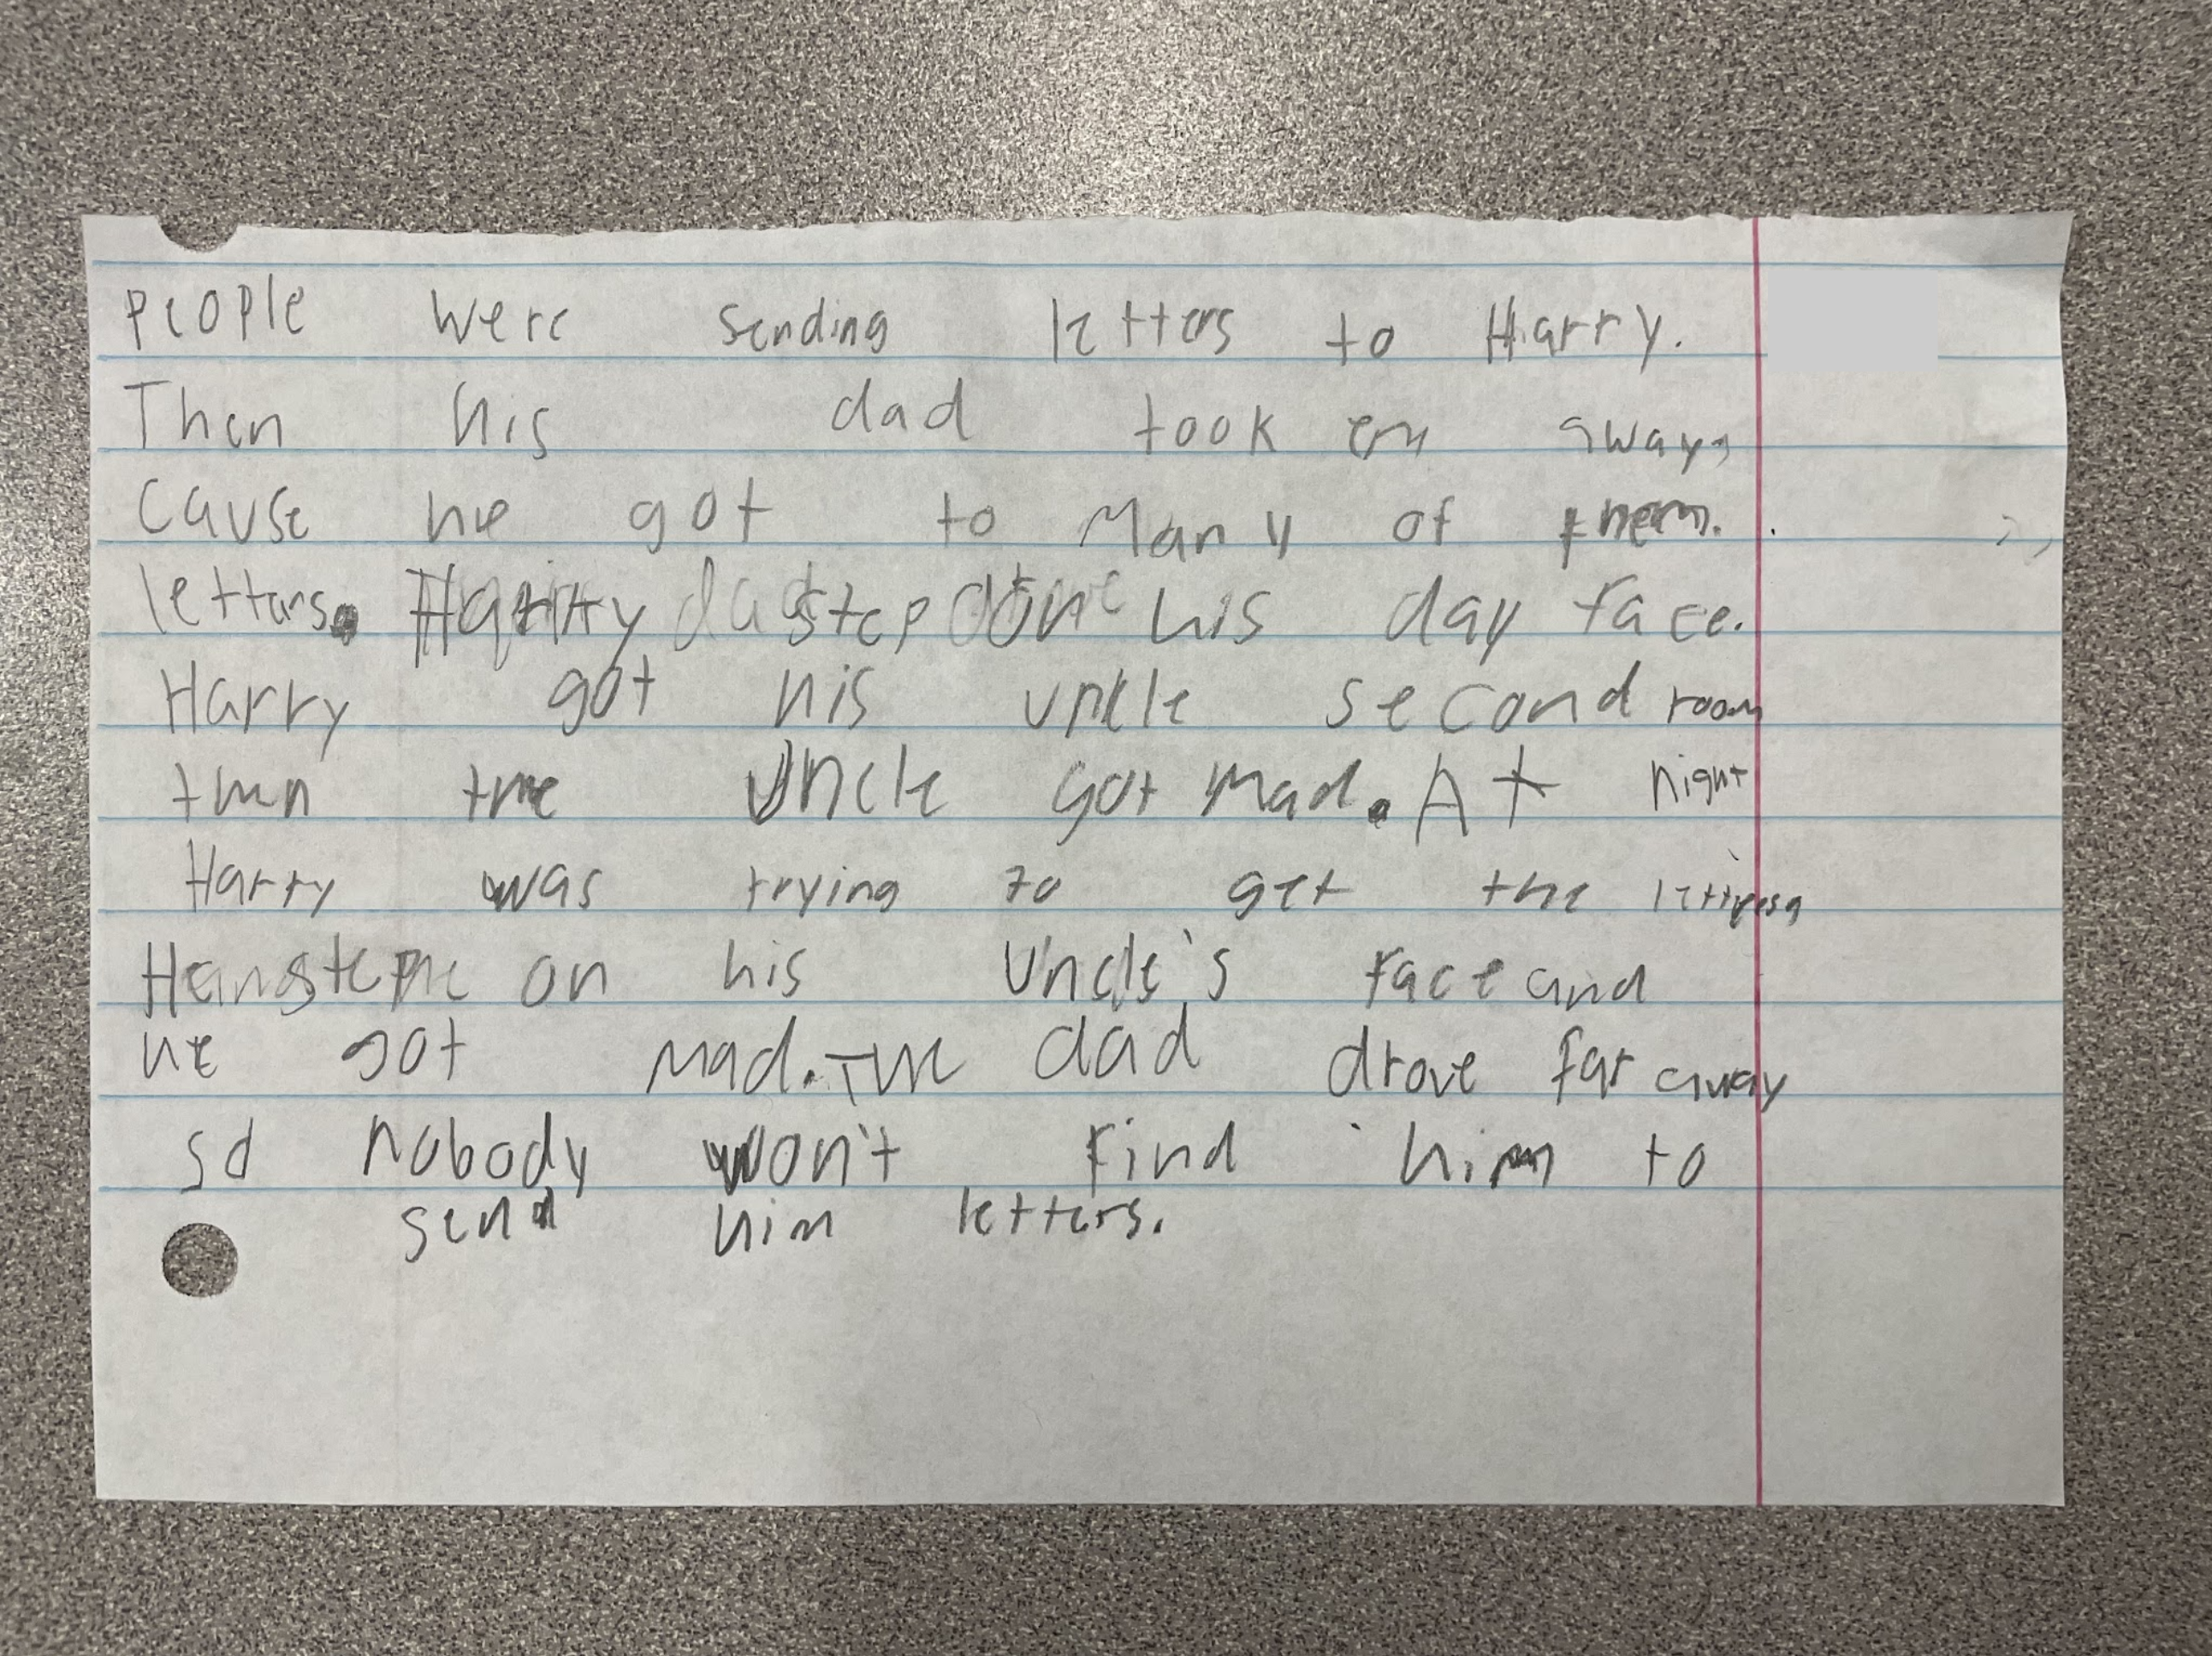 People were sending letters to Harry.
Then his dad took em away,
Cause he got to Many of them.
letters. Harry step on his day face.
Harry got his unkle second room
then the Uncle got mad. At night
Harry was trying to get the letters,
He step on his Uncle's face and
he got mad. The dad drove far away
so nobody won't find him to
send him letters.